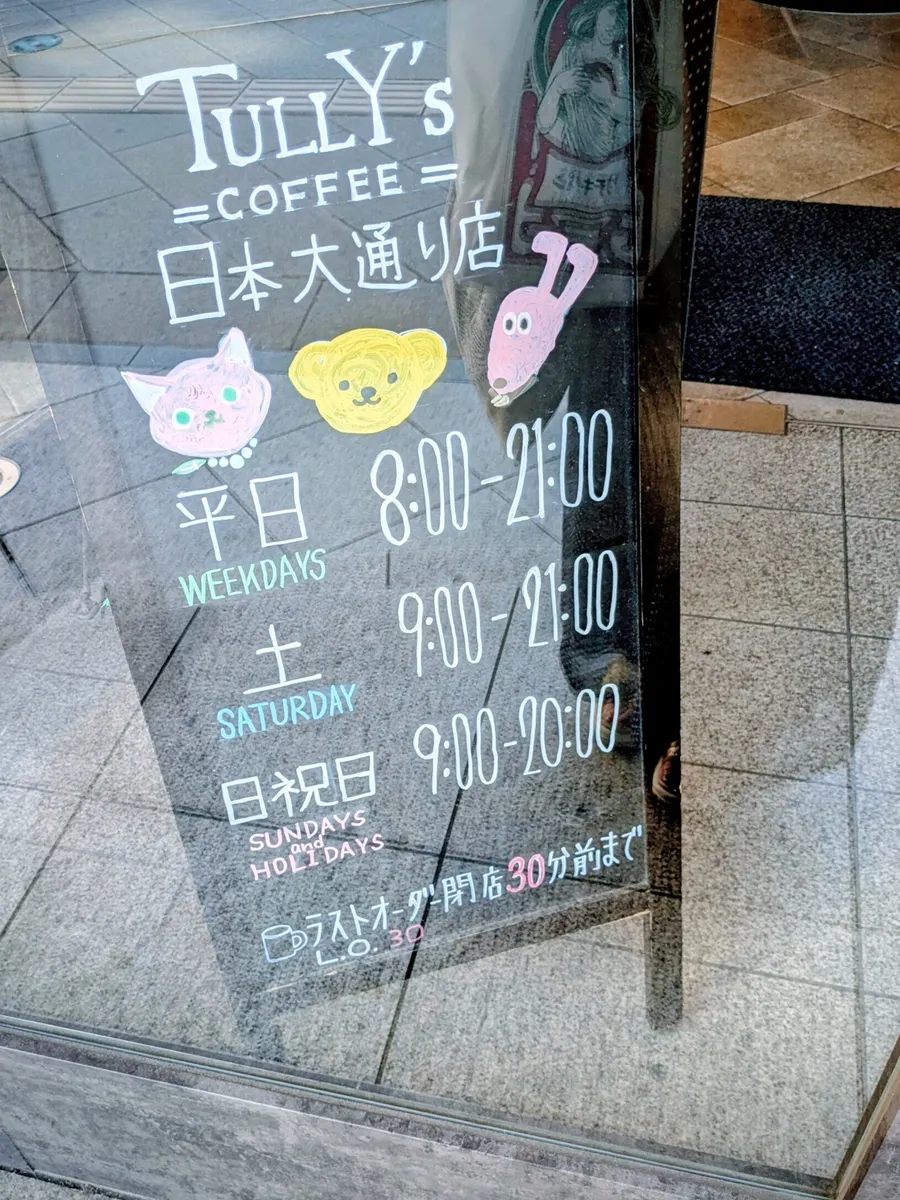 TULLY's
=COFFEE=
日本大通り店
平日 8:00-21:00
WEEKDAYS
土 9:00-21:00
SATURDAY
日祝日 9:00-20:00
SUNDAYS
and
HOLIDAYS
ラストオーダー閉店30分前まで
L.O. 30